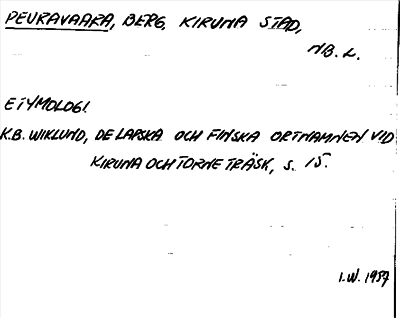 PEURAVAARA, BERG, KIRUNA STAD,
NB. L.
ETYMOLOGI
K.B. WIKLUND, DE LAPSKA OCH FINSKA ORTNAMNEN VID
KIRUNA OCH TORNE TRÄSK, S. 15.
I.W. 1957